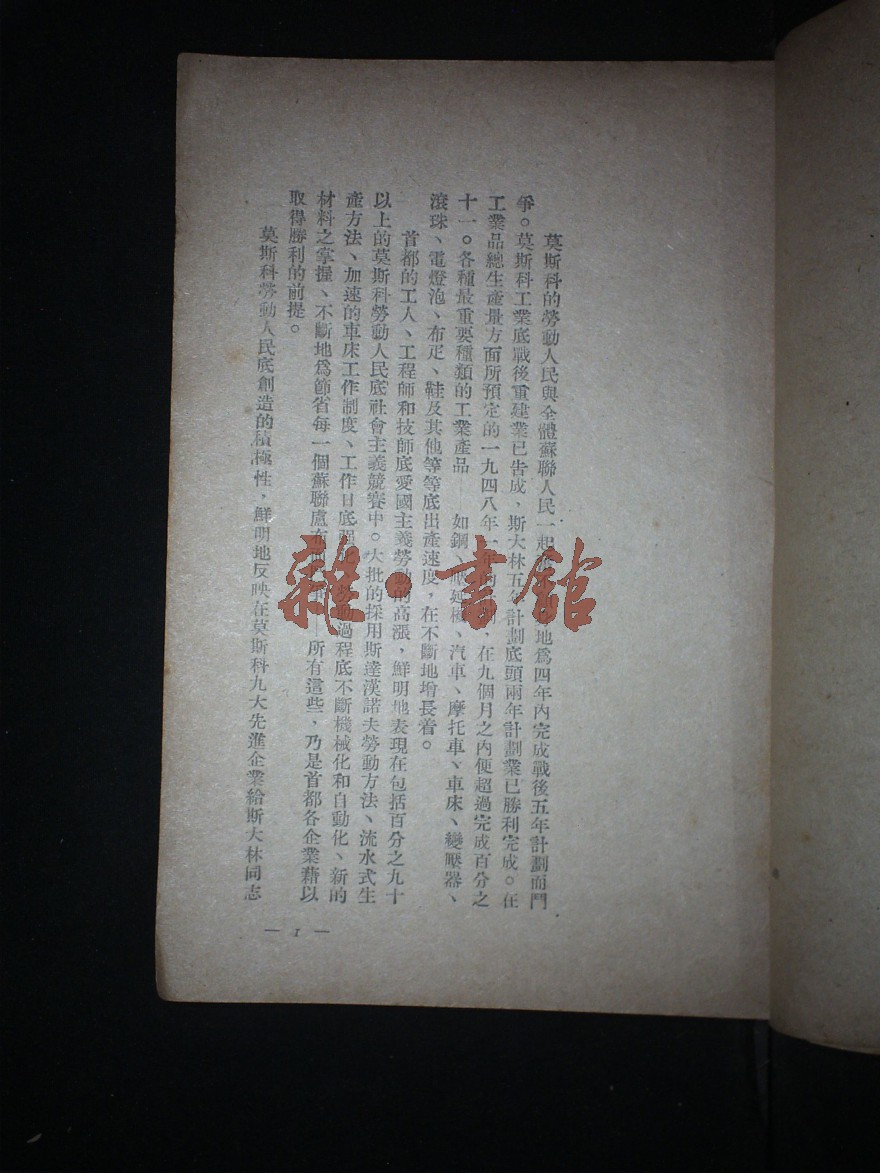 莫斯科的勞動人民與全體蘇聯人民一起 地爲四年內完成戰後五年計劃而鬥
爭。莫斯科工業底戰後重建業已告成，斯大林五年計劃底頭兩年計劃業已勝利完成。在
工業品總生產量方面所預定的一九四八年一年的 ，在九個月之內便超過完成百分之
十一。各種最重要種類的工業產品 如鋼、 、汽車、摩托車、車床、變壓器、
滾珠、電燈泡、布疋、鞋及其他等等底出產速度，在不斷地增長着。
首都的工人、工程師和技師底愛國主義勞動的高漲，鮮明地表現在包括百分之九十
以上的莫斯科勞動人民底社會主義競賽中。大批的採用斯達漢諾夫勞動方法、流水式生
產方法、加速的車床工作制度、工作日底 勞動過程底不斷機械化和自動化、新的
材料之掌握、不斷地爲節省每一個蘇聯盧布 所有這些，乃是首都各企業藉以
取得勝利的前提。
莫斯科勞動人民底創造的積極性，鮮明地反映在莫斯科九大先進企業給斯大林同志
— 1 —
雜·書館